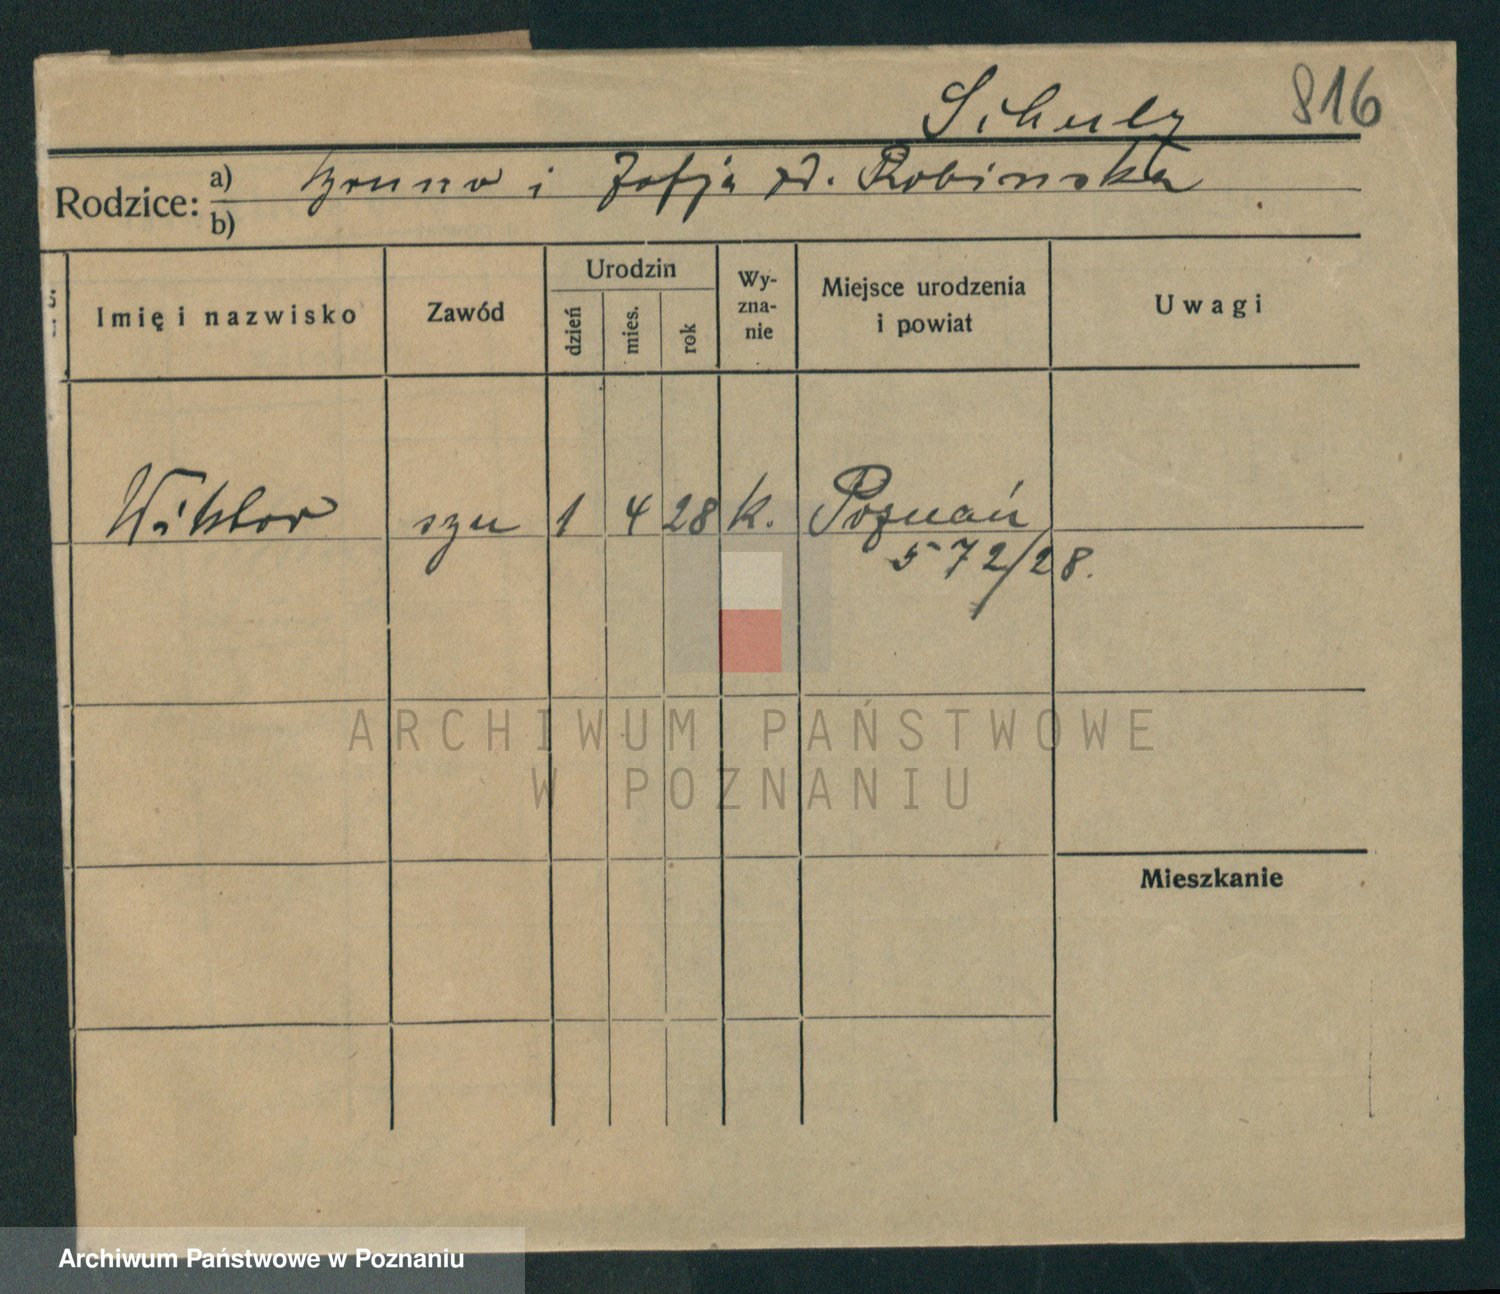 Schulz 816
Rodzice: a) Bruno i Zofja zd. Robinska
b)
Imię i nazwisko
Zawód
Urodzin
dzień
mies.
rok
Wy-
zna-
nie
Miejsce urodzenia
i powiat
Uwagi
Wiktor syn 1 4 28 k. Poznań
572/28.
ARCHIWUM PAŃSTWOWE
W POZNANIU
Mieszkanie
Archiwum Państwowe w Poznaniu